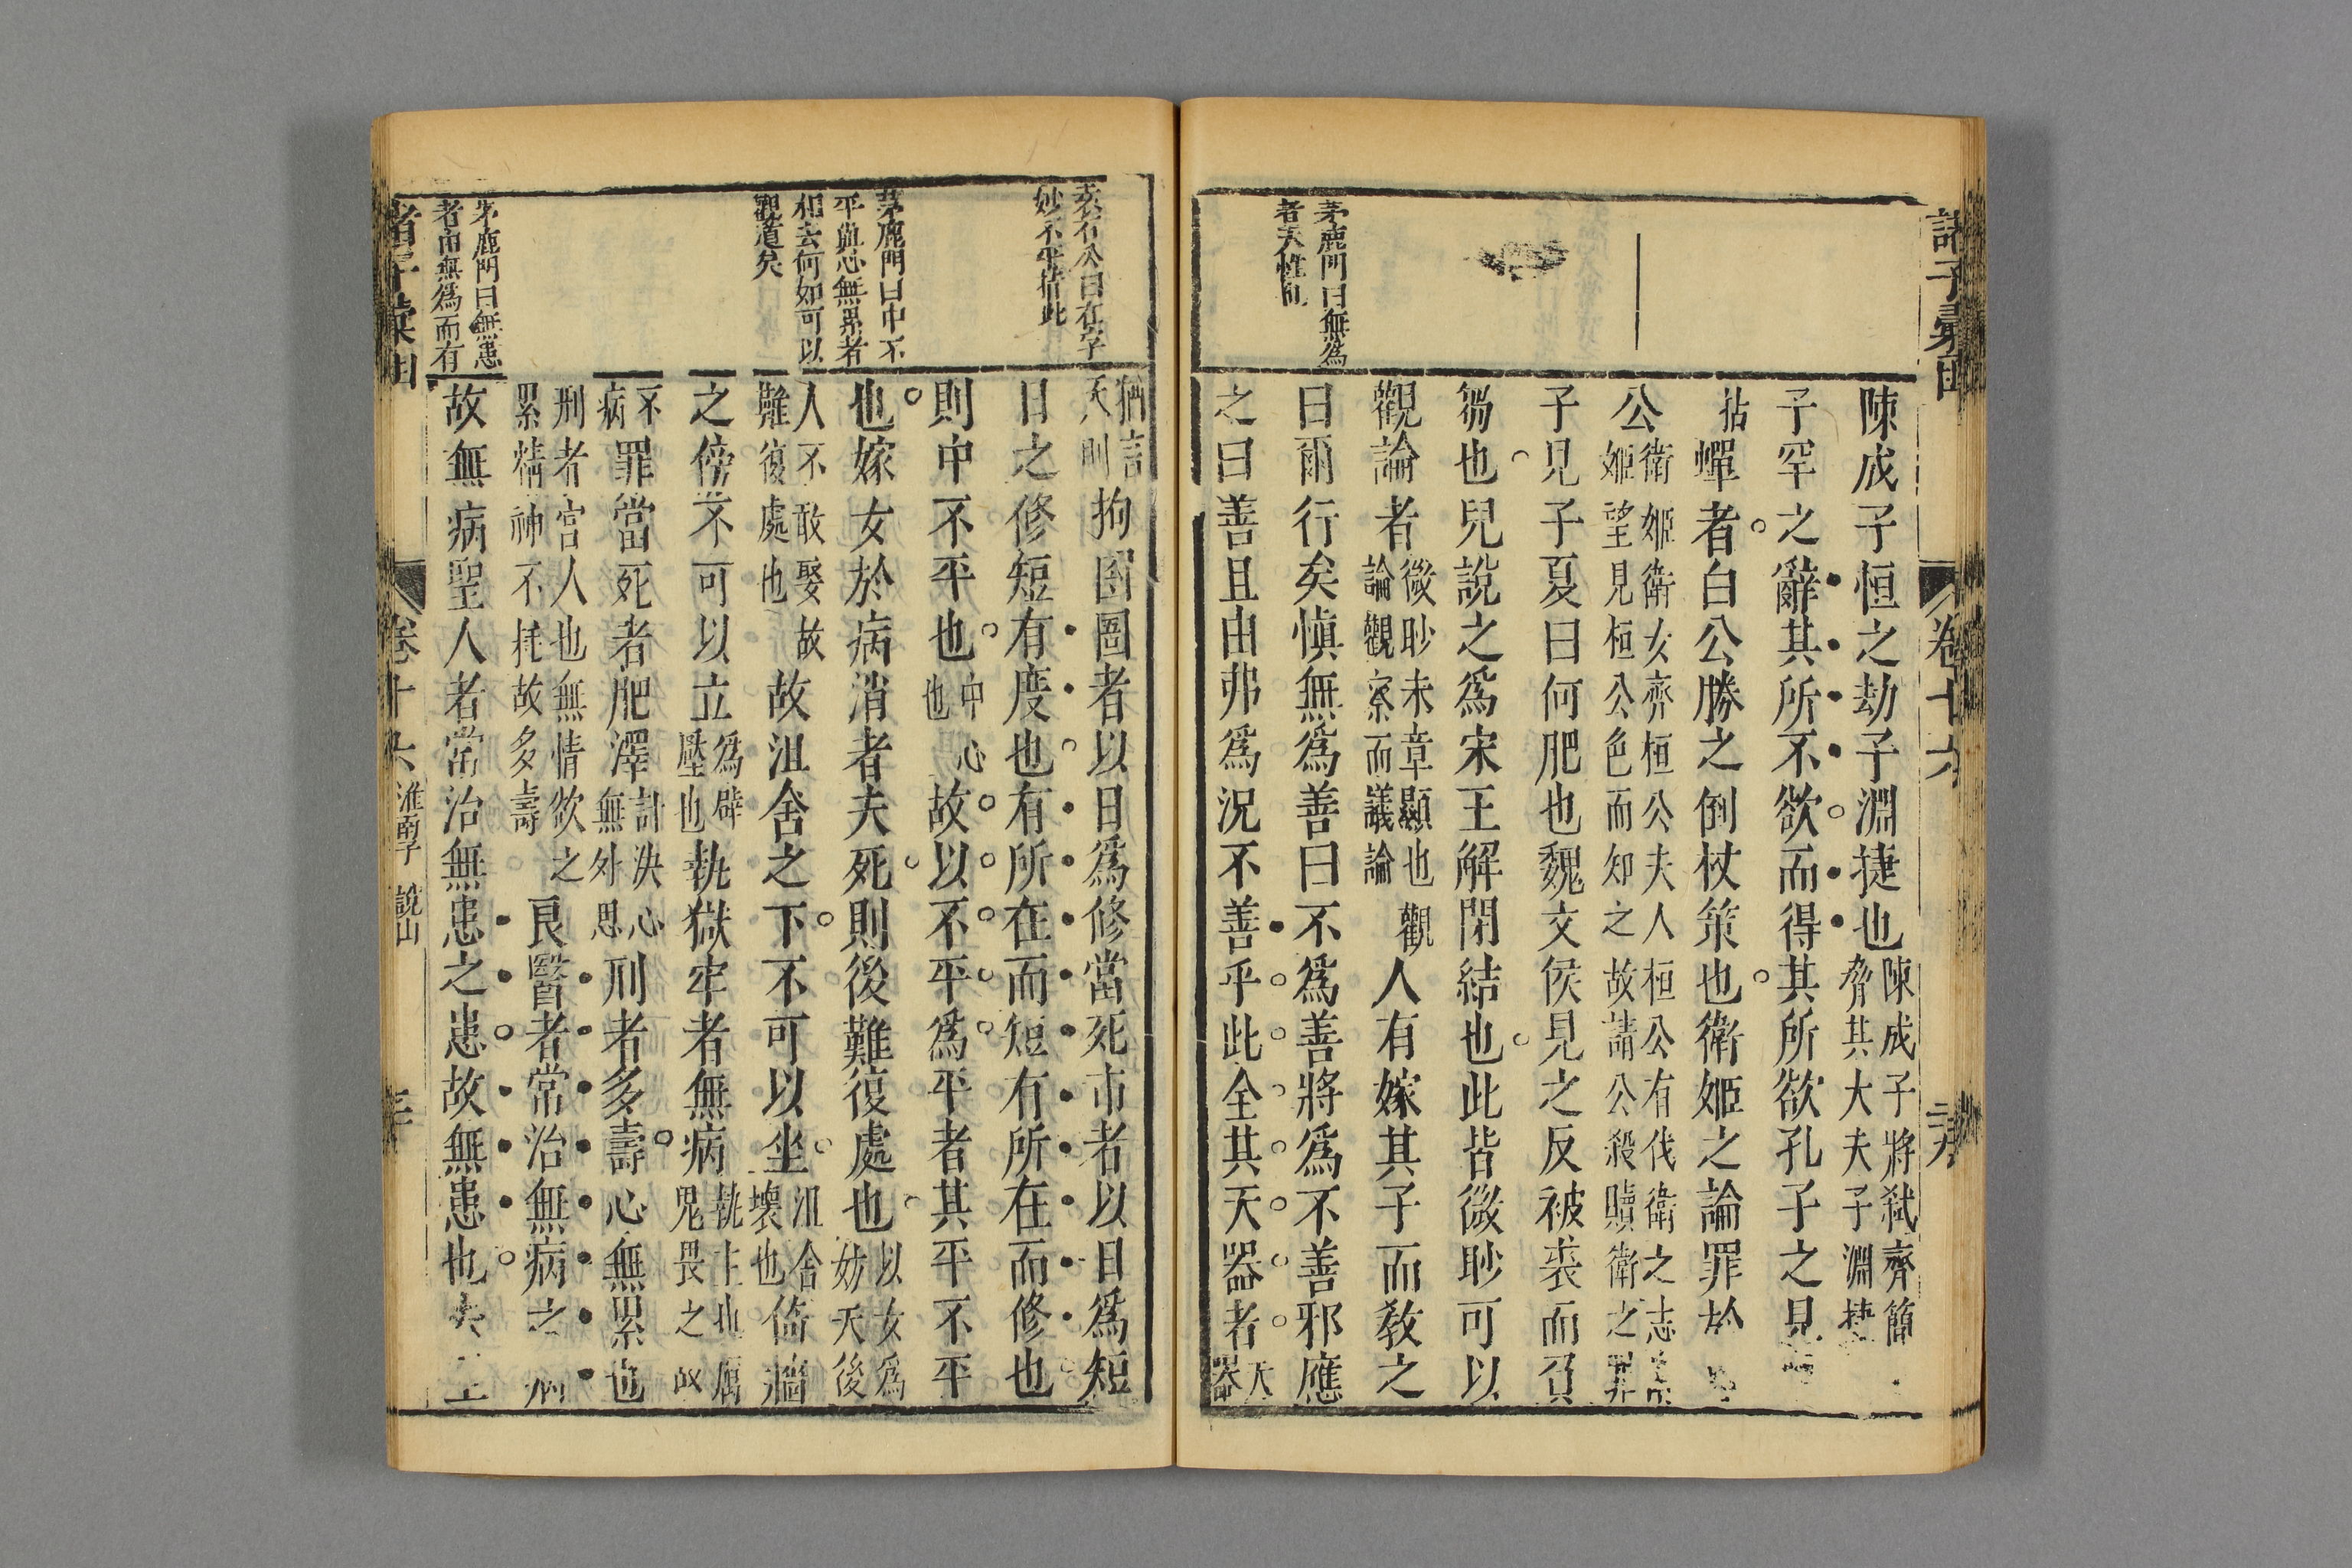 諸子彙函
卷十六
茅鹿門曰無爲
者天性
陳成子恒之劫子淵捷也陳成子將弑齊簡
脅其大夫子淵捷
子罕之辭其所不欲而得其所欲孔子之見
拈蟬者白公勝之倒杖策也衛姬之論罪於
公衛姬衛女齊桓公夫人桓公有伐衛之志
姬望見桓公色而知之故請公殺贖衛之罪
子見子夏曰何肥也魏文侯見之反被裘而負
芻也兒說之爲宋王解閉結也此皆微眇可以
觀論者微眇未章顯也觀
論觀察而議論
人有嫁其子而教之
曰爾行矣愼無爲善曰不爲善將爲不善邪應
之曰善且由弗爲況不善乎此全其天器者天
器
袁石公曰在字
妙不平措此
茅鹿門曰中不
平與心無累者
相去何如可以
觀道矣
茅鹿門曰無患
者由無爲而有
猶言
天則
拘囹圄者以日爲修當死市者以日爲短
日之修短有度也有所在而短有所在而修也
則中不平也中心
也
故以不平爲平者其平不平
也嫁女於病消者夫死則後難復處也以女爲
妨夫後
人不敢娶故
難復處也
故沮舍之下不可以坐沮舍
壞也
倚牆
之傍不可以立爲壓
壓也
執獄牢者無病執主牢
鬼畏之故
不
病
罪當死者肥澤計決心
無外思
刑者多壽心無累也
刑者宮人也無情欲之
累精神不耗故多壽
良醫者常治無病之病
故無病聖人者常治無患之患故無患也夫
諸子彙函
卷十六
淮南子
說山